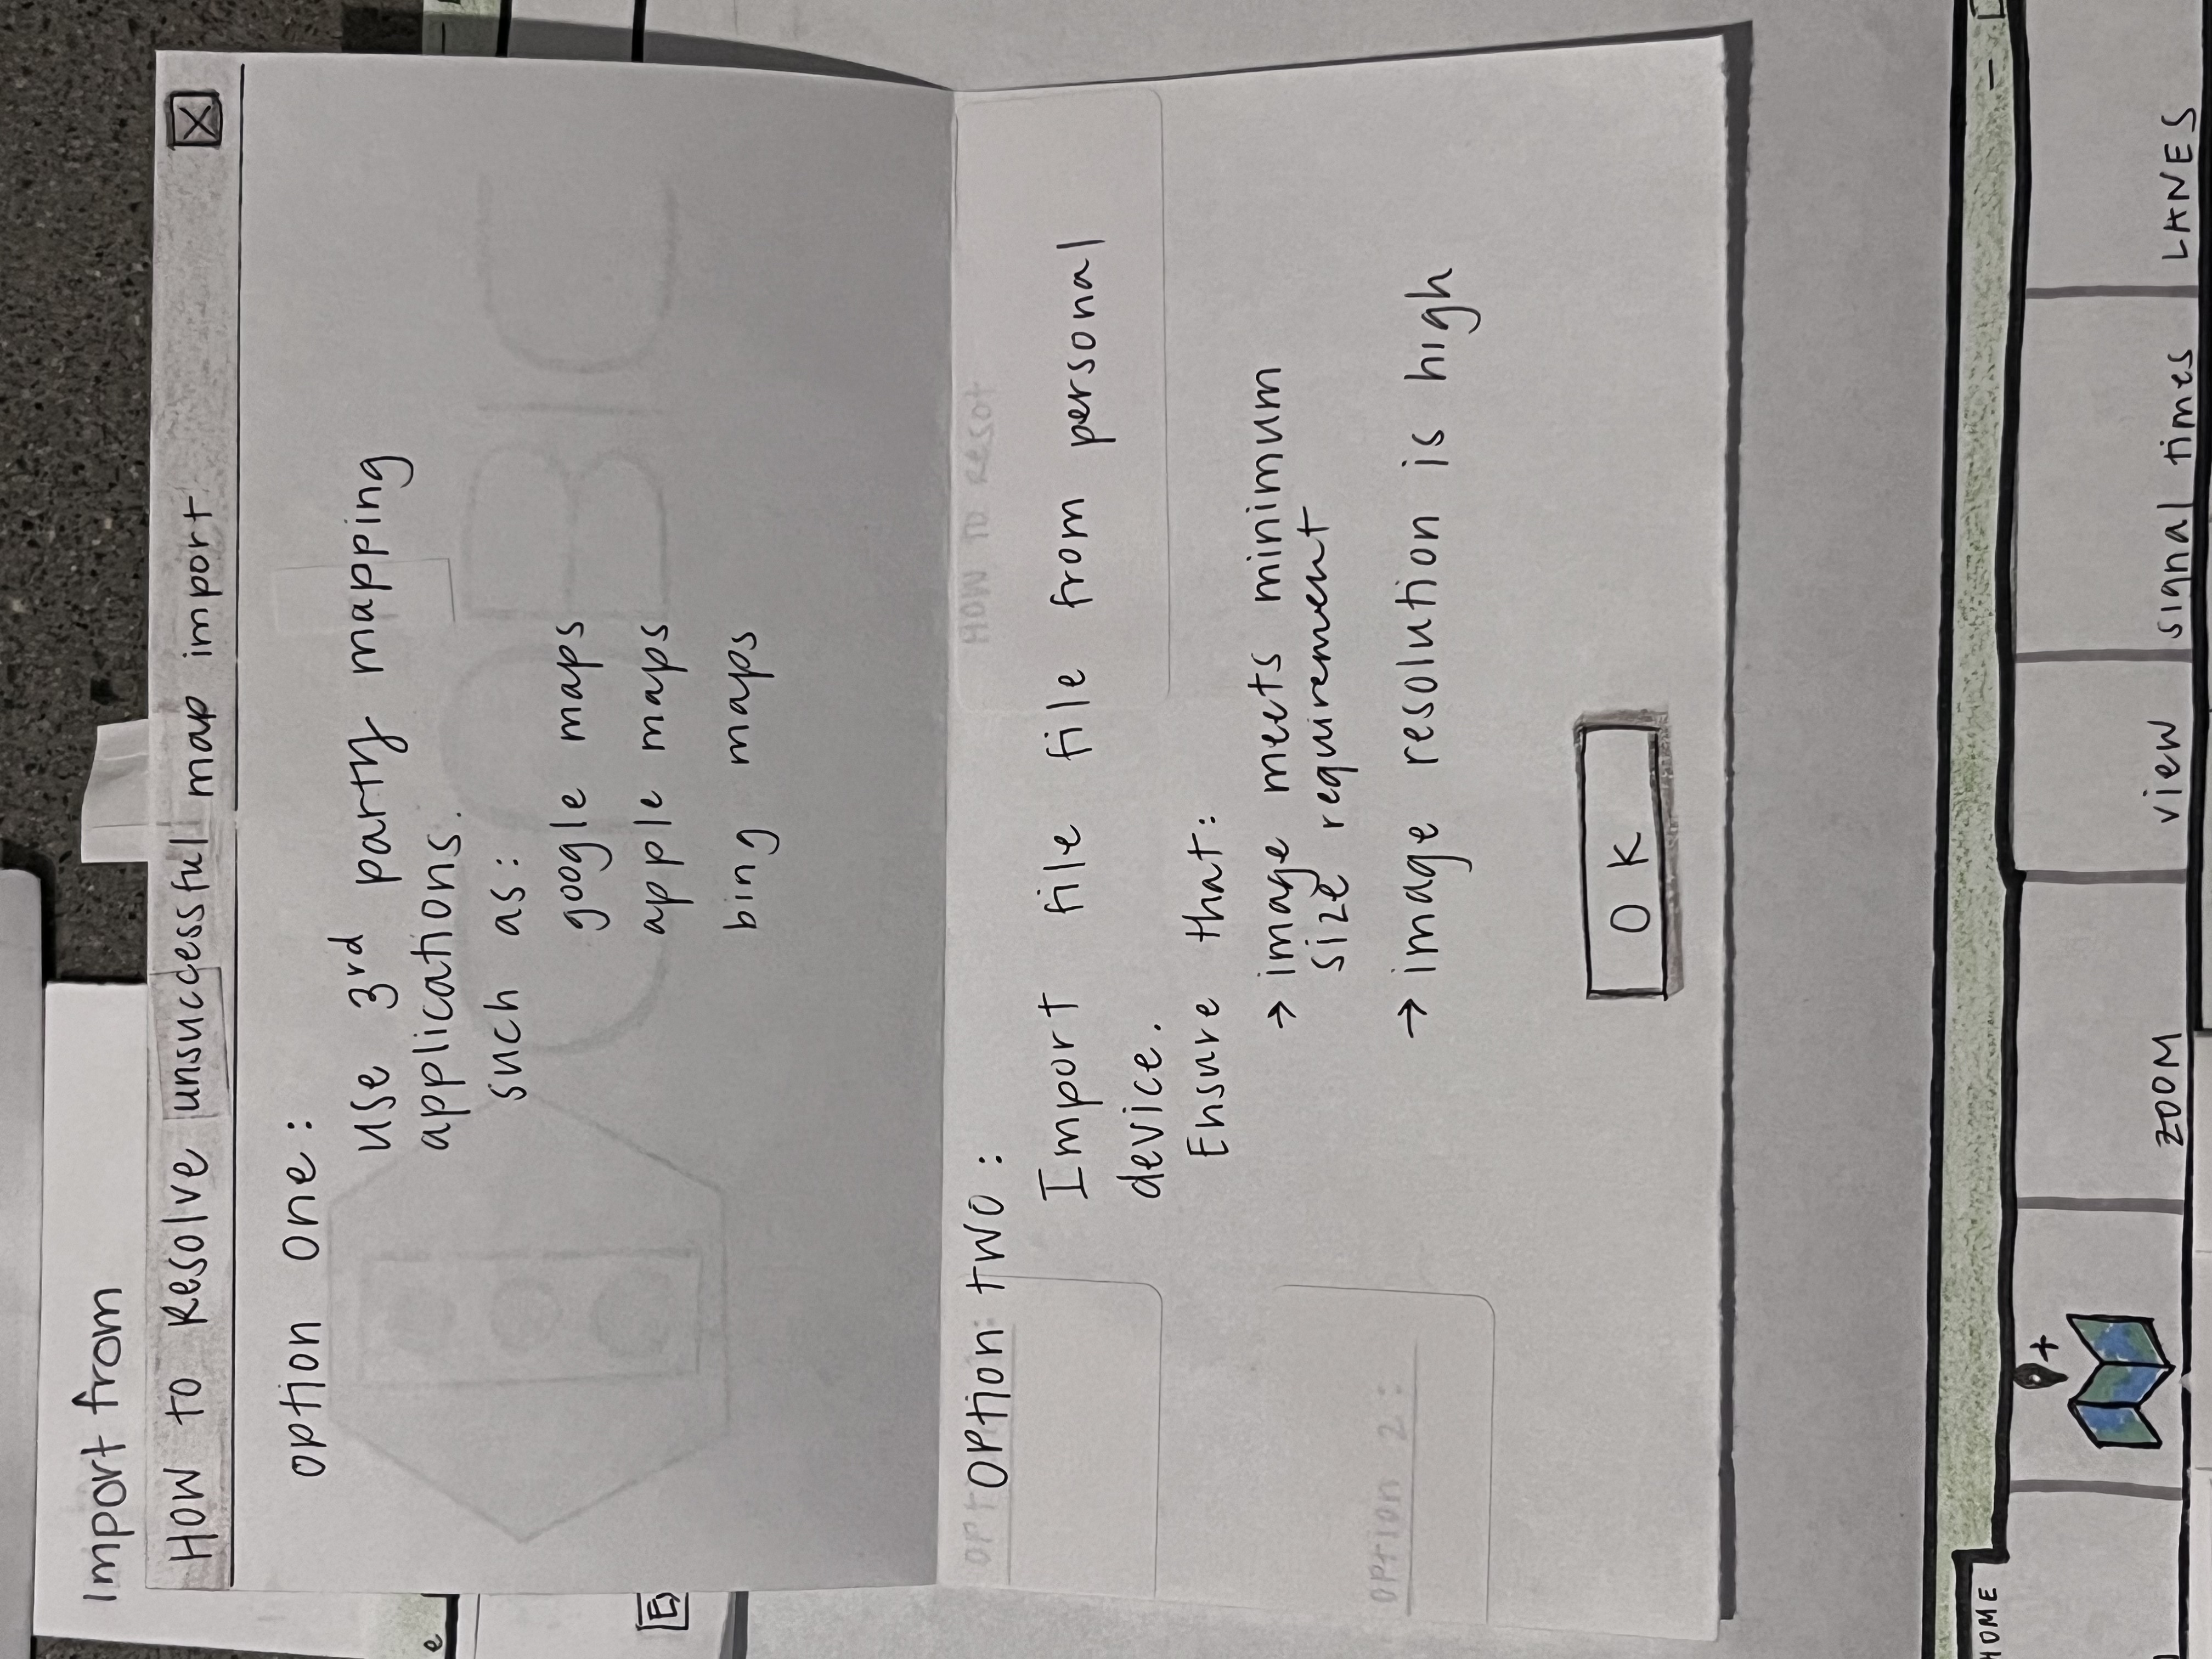 Import from
HOW to Resolve unsuccessful map import
X
option one:
use 3rd party mapping
applications.
such as:
google maps
apple maps
bing maps
OPTion TWO:
Import file file from personal
device.
Ensure that:
→ image meets minimum
size requirement
→ image resolution is high
OK
HOW TO Resot
OPTION 2:
COBIC
e
E
HOME
+
ZOOM
view
signal times
LANES